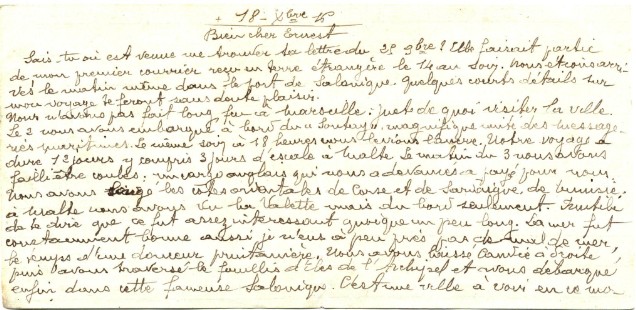 + 18 - Xbre 15
Bien cher Ernest
Sais-tu où est venue me trouver ta lettre du 25 9bre? Elle faisait partie
de mon premier courrier reçu en terre étrangère le 14 au soir. Nous étions arri-
vés le matin même dans le port de Salonique. Quelques courts détails sur
mon voyage te feront sans doute plaisir.
Nous n'avons pas fait long feu à Marseille: juste de quoi visiter la ville.
Le 2 nous avons embarqué à bord du "Sontay", magnifique unité des Message-
ries maritimes. Le même soir à 18 heures nous levions l'ancre. Notre voyage a
duré 12 jours y compris 3 jours d'escale à Malte. Le matin du 3 nous avons
failli être coulés: un cargo anglais qui nous a devancés a payé pour nous.
Nous avons longé les côtes orientales de Corse et de Sardaigne, de Tunisie.
à Malte nous avons vu La Valette mais du bord seulement. Inutile
de te dire que ce fut assez intéressant quoique un peu long. La mer fut
constamment bonne aussi je n'eus à peu près pas de mal de mer,
le temps d'une douceur printanière. Nous avons laissé Candie à droite
puis avons traversé le fouillis d'îles de l'Archipel et nous débarqué
enfin dans cette fameuse Salonique. C'est une ville à voir en ce mo-